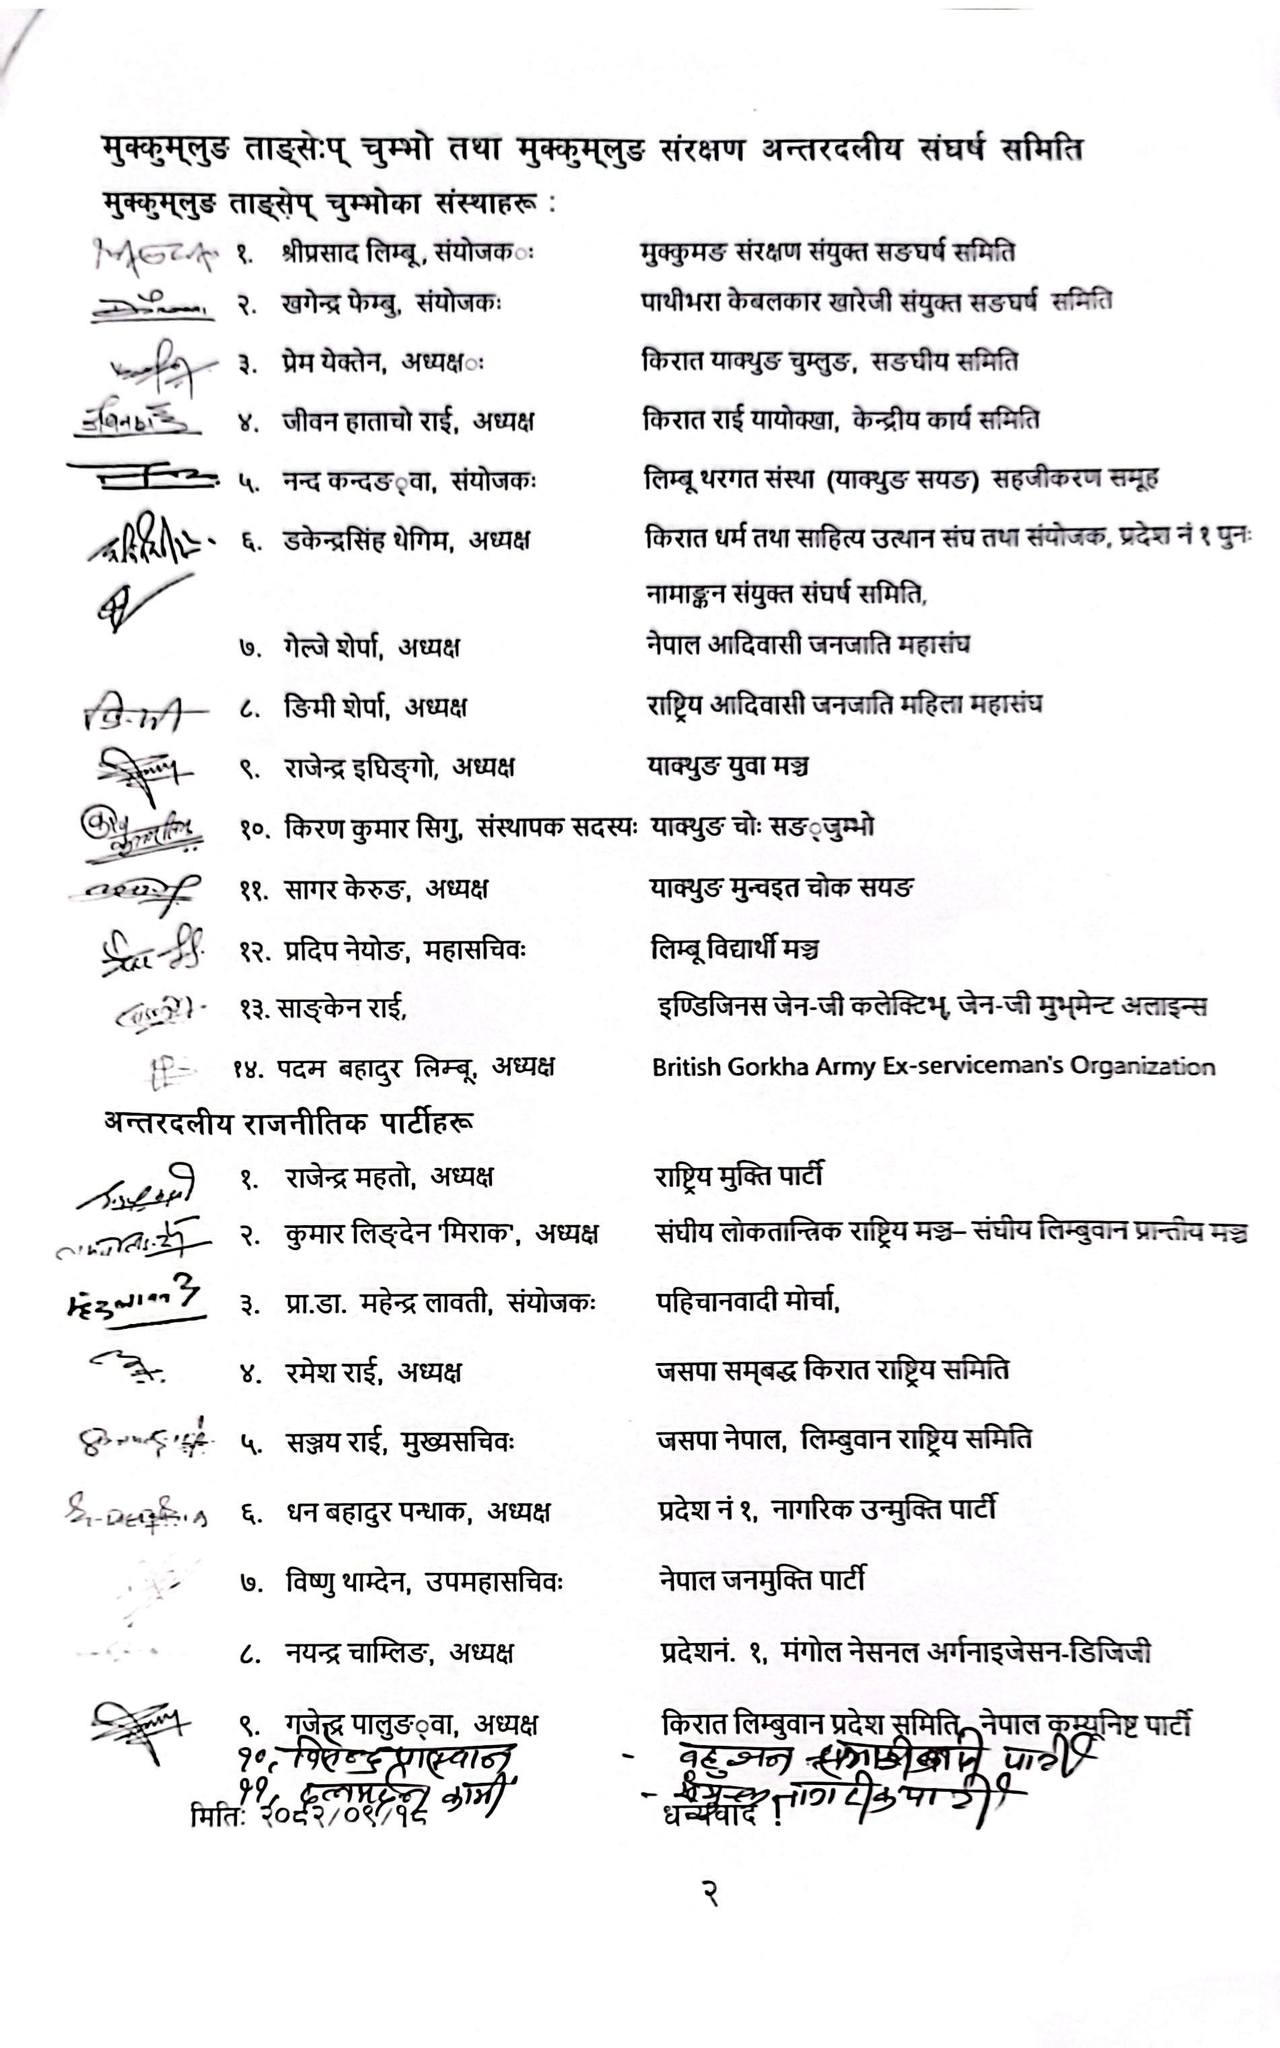 मुक्कुम्लुङ ताङ्सेःप् चुम्भो तथा मुक्कुम्लुङ संरक्षण अन्तरदलीय संघर्ष समिति
मुक्कुम्लुङ ताङ्से़प् चुम्भोका संस्थाहरू :
१. श्रीप्रसाद लिम्बू, संयोजकः मुक्कुमङ संरक्षण संयुक्त सङघर्ष समिति
२. खगेन्द्र फेम्बु, संयोजकः पाथीभरा केबलकार खारेजी संयुक्त सङघर्ष समिति
३. प्रेम येक्तेन, अध्यक्षः किरात याक्थुङ चुम्लुङ, सङघीय समिति
४. जीवन हाताचो राई, अध्यक्ष किरात राई यायोक्खा, केन्द्रीय कार्य समिति
५. नन्द कन्दङ्वा, संयोजकः लिम्बू थरगत संस्था (याक्थुङ सयङ) सहजीकरण समूह
६. डकेन्द्रसिंह थेगिम, अध्यक्ष किरात धर्म तथा साहित्य उत्थान संघ तथा संयोजक, प्रदेश नं १ पुनः
नामाङ्कन संयुक्त संघर्ष समिति,
७. गेल्जे शेर्पा, अध्यक्ष नेपाल आदिवासी जनजाति महासंघ
८. ङिमी शेर्पा, अध्यक्ष राष्ट्रिय आदिवासी जनजाति महिला महासंघ
९. राजेन्द्र इघिङ्गो, अध्यक्ष याक्थुङ युवा मञ्च
१०. किरण कुमार सिगु, संस्थापक सदस्यः याक्थुङ चोः सङ्जुम्भो
११. सागर केरुङ, अध्यक्ष याक्थुङ मुन्चइत चोक सयङ
१२. प्रदिप नेयोङ, महासचिवः लिम्बू विद्यार्थी मञ्च
१३. साङ्केन राई, इण्डिजिनस जेन-जी कलेक्टिभ्, जेन-जी मुभ्मेन्ट अलाइन्स
१४. पदम बहादुर लिम्बू, अध्यक्ष British Gorkha Army Ex-serviceman's Organization
अन्तरदलीय राजनीतिक पार्टीहरू
१. राजेन्द्र महतो, अध्यक्ष राष्ट्रिय मुक्ति पार्टी
२. कुमार लिङ्देन 'मिराक', अध्यक्ष संघीय लोकतान्त्रिक राष्ट्रिय मञ्च– संघीय लिम्बुवान प्रान्तीय मञ्च
३. प्रा.डा. महेन्द्र लावती, संयोजकः पहिचानवादी मोर्चा,
४. रमेश राई, अध्यक्ष जसपा सम्बद्ध किरात राष्ट्रिय समिति
५. सञ्जय राई, मुख्यसचिवः जसपा नेपाल, लिम्बुवान राष्ट्रिय समिति
६. धन बहादुर पन्धाक, अध्यक्ष प्रदेश नं १, नागरिक उन्मुक्ति पार्टी
७. विष्णु थाम्देन, उपमहासचिवः नेपाल जनमुक्ति पार्टी
८. नयन्द्र चाम्लिङ, अध्यक्ष प्रदेशनं. १, मंगोल नेसनल अर्गनाइजेसन-डिजिजी
९. गजेन्द्र पालुङ्वा, अध्यक्ष किरात लिम्बुवान प्रदेश समिति, नेपाल कम्यूनिष्ट पार्टी
१०. - बहुजन पार्टी
११. कामी - पार्टी
मितिः २०८२/०९/१८ धन्यवाद !
२